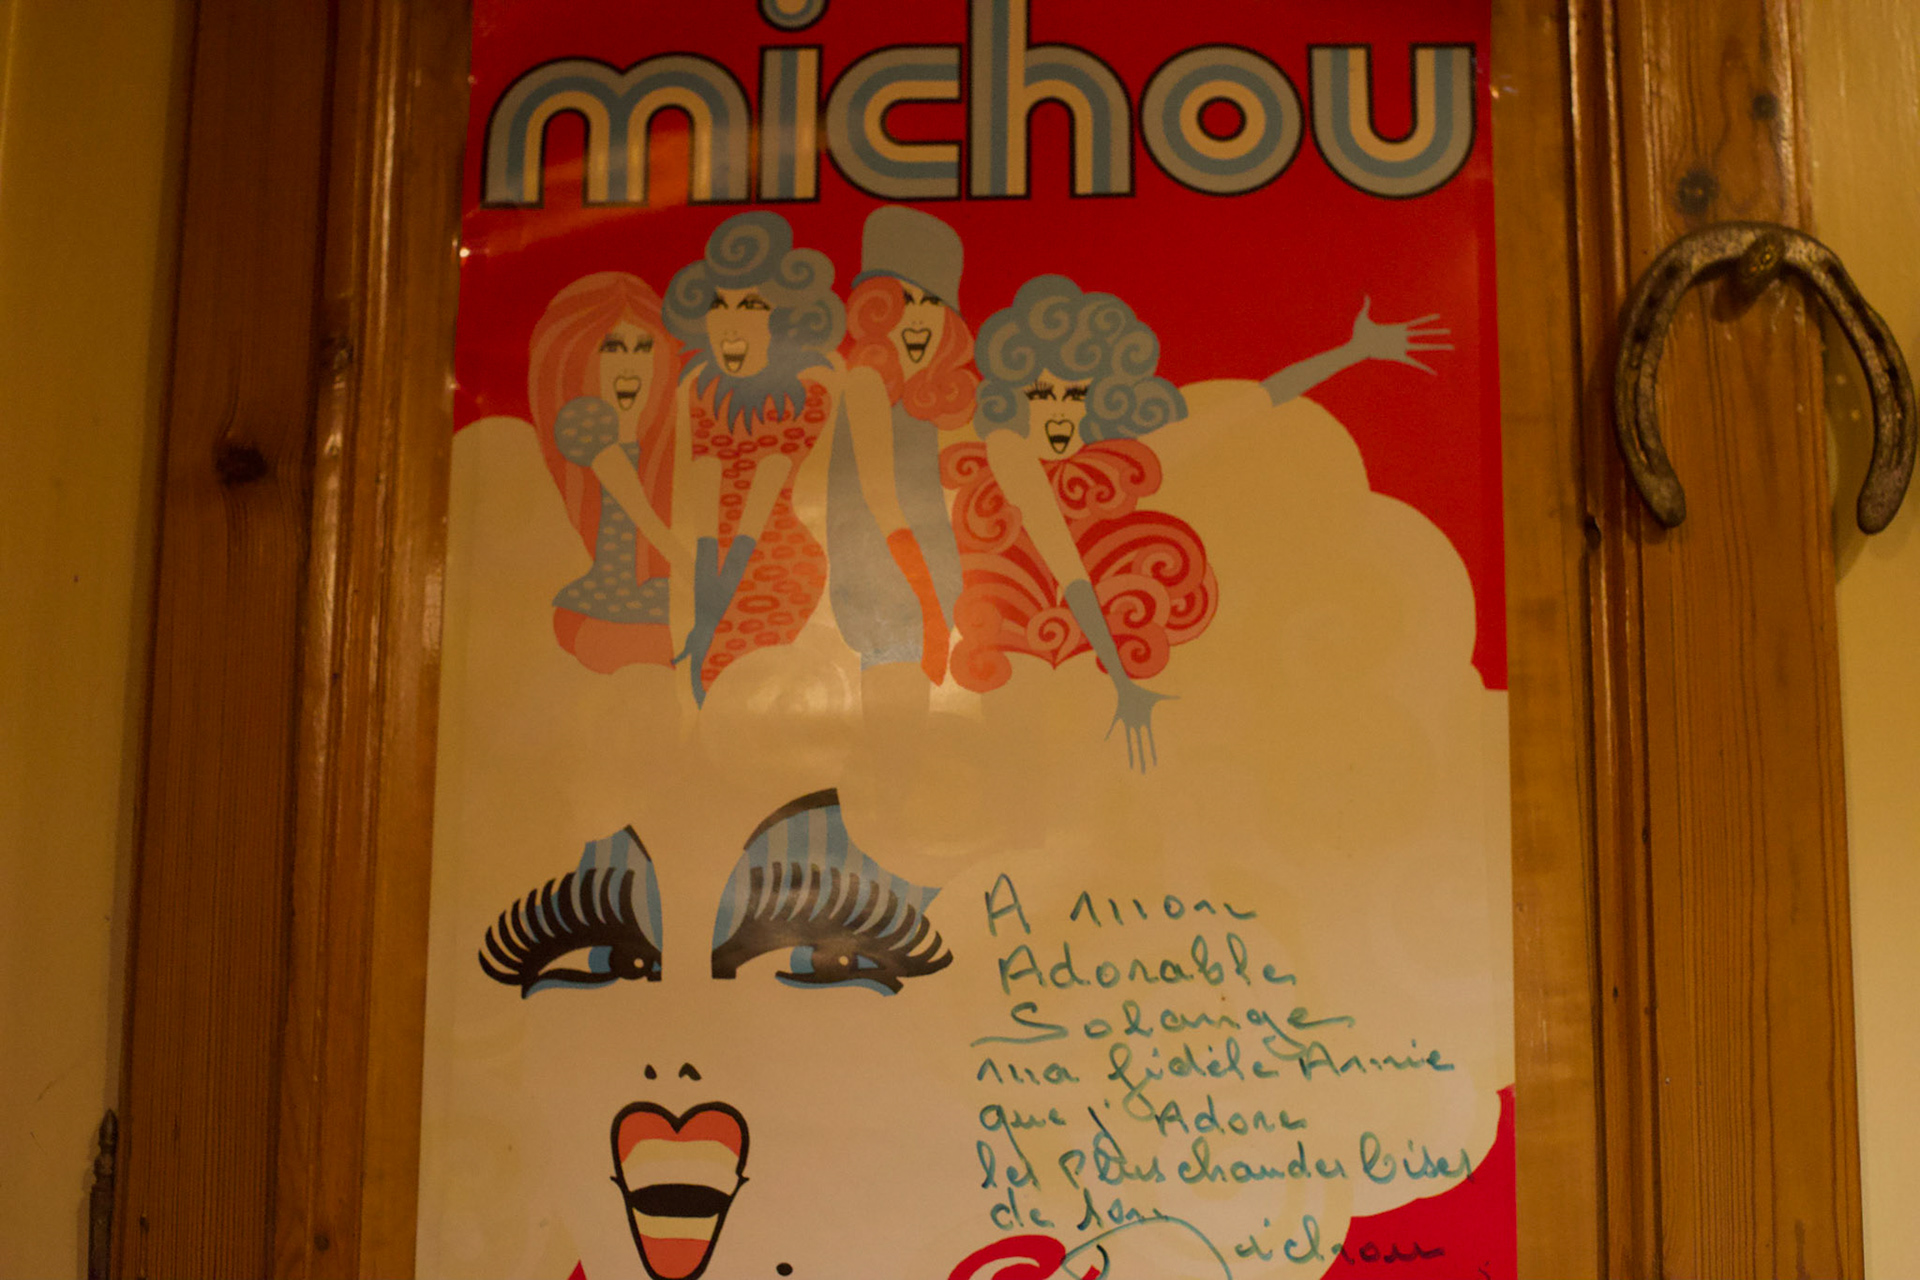 michou
A mon
Adorable
Solange
ma fidèle Annie
que j'Adore
les plus chaudes bises
de ton
Michou